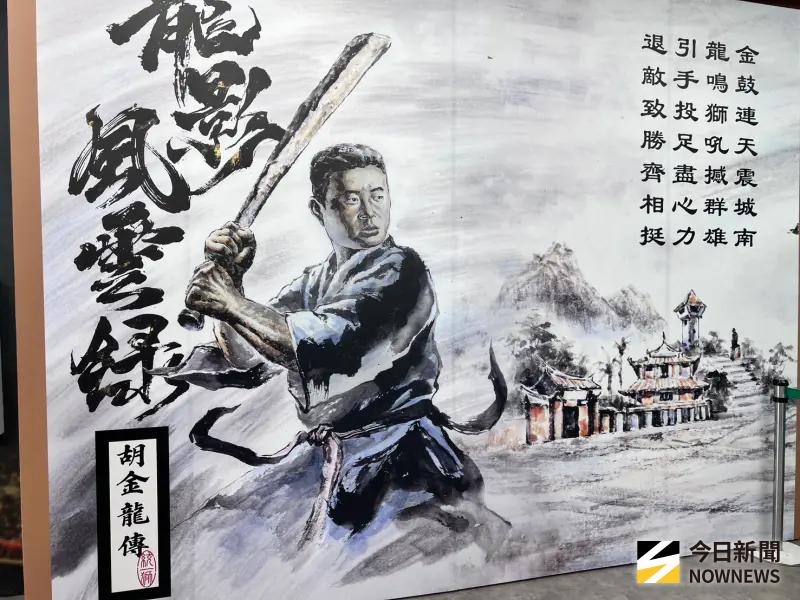 龍影
風雲錄
胡金龍傳
統獅
金鼓連天震城南
龍鳴獅吼撼群雄
引手投足盡心力
退敵致勝齊相挺
今日新聞
NOWNEWS